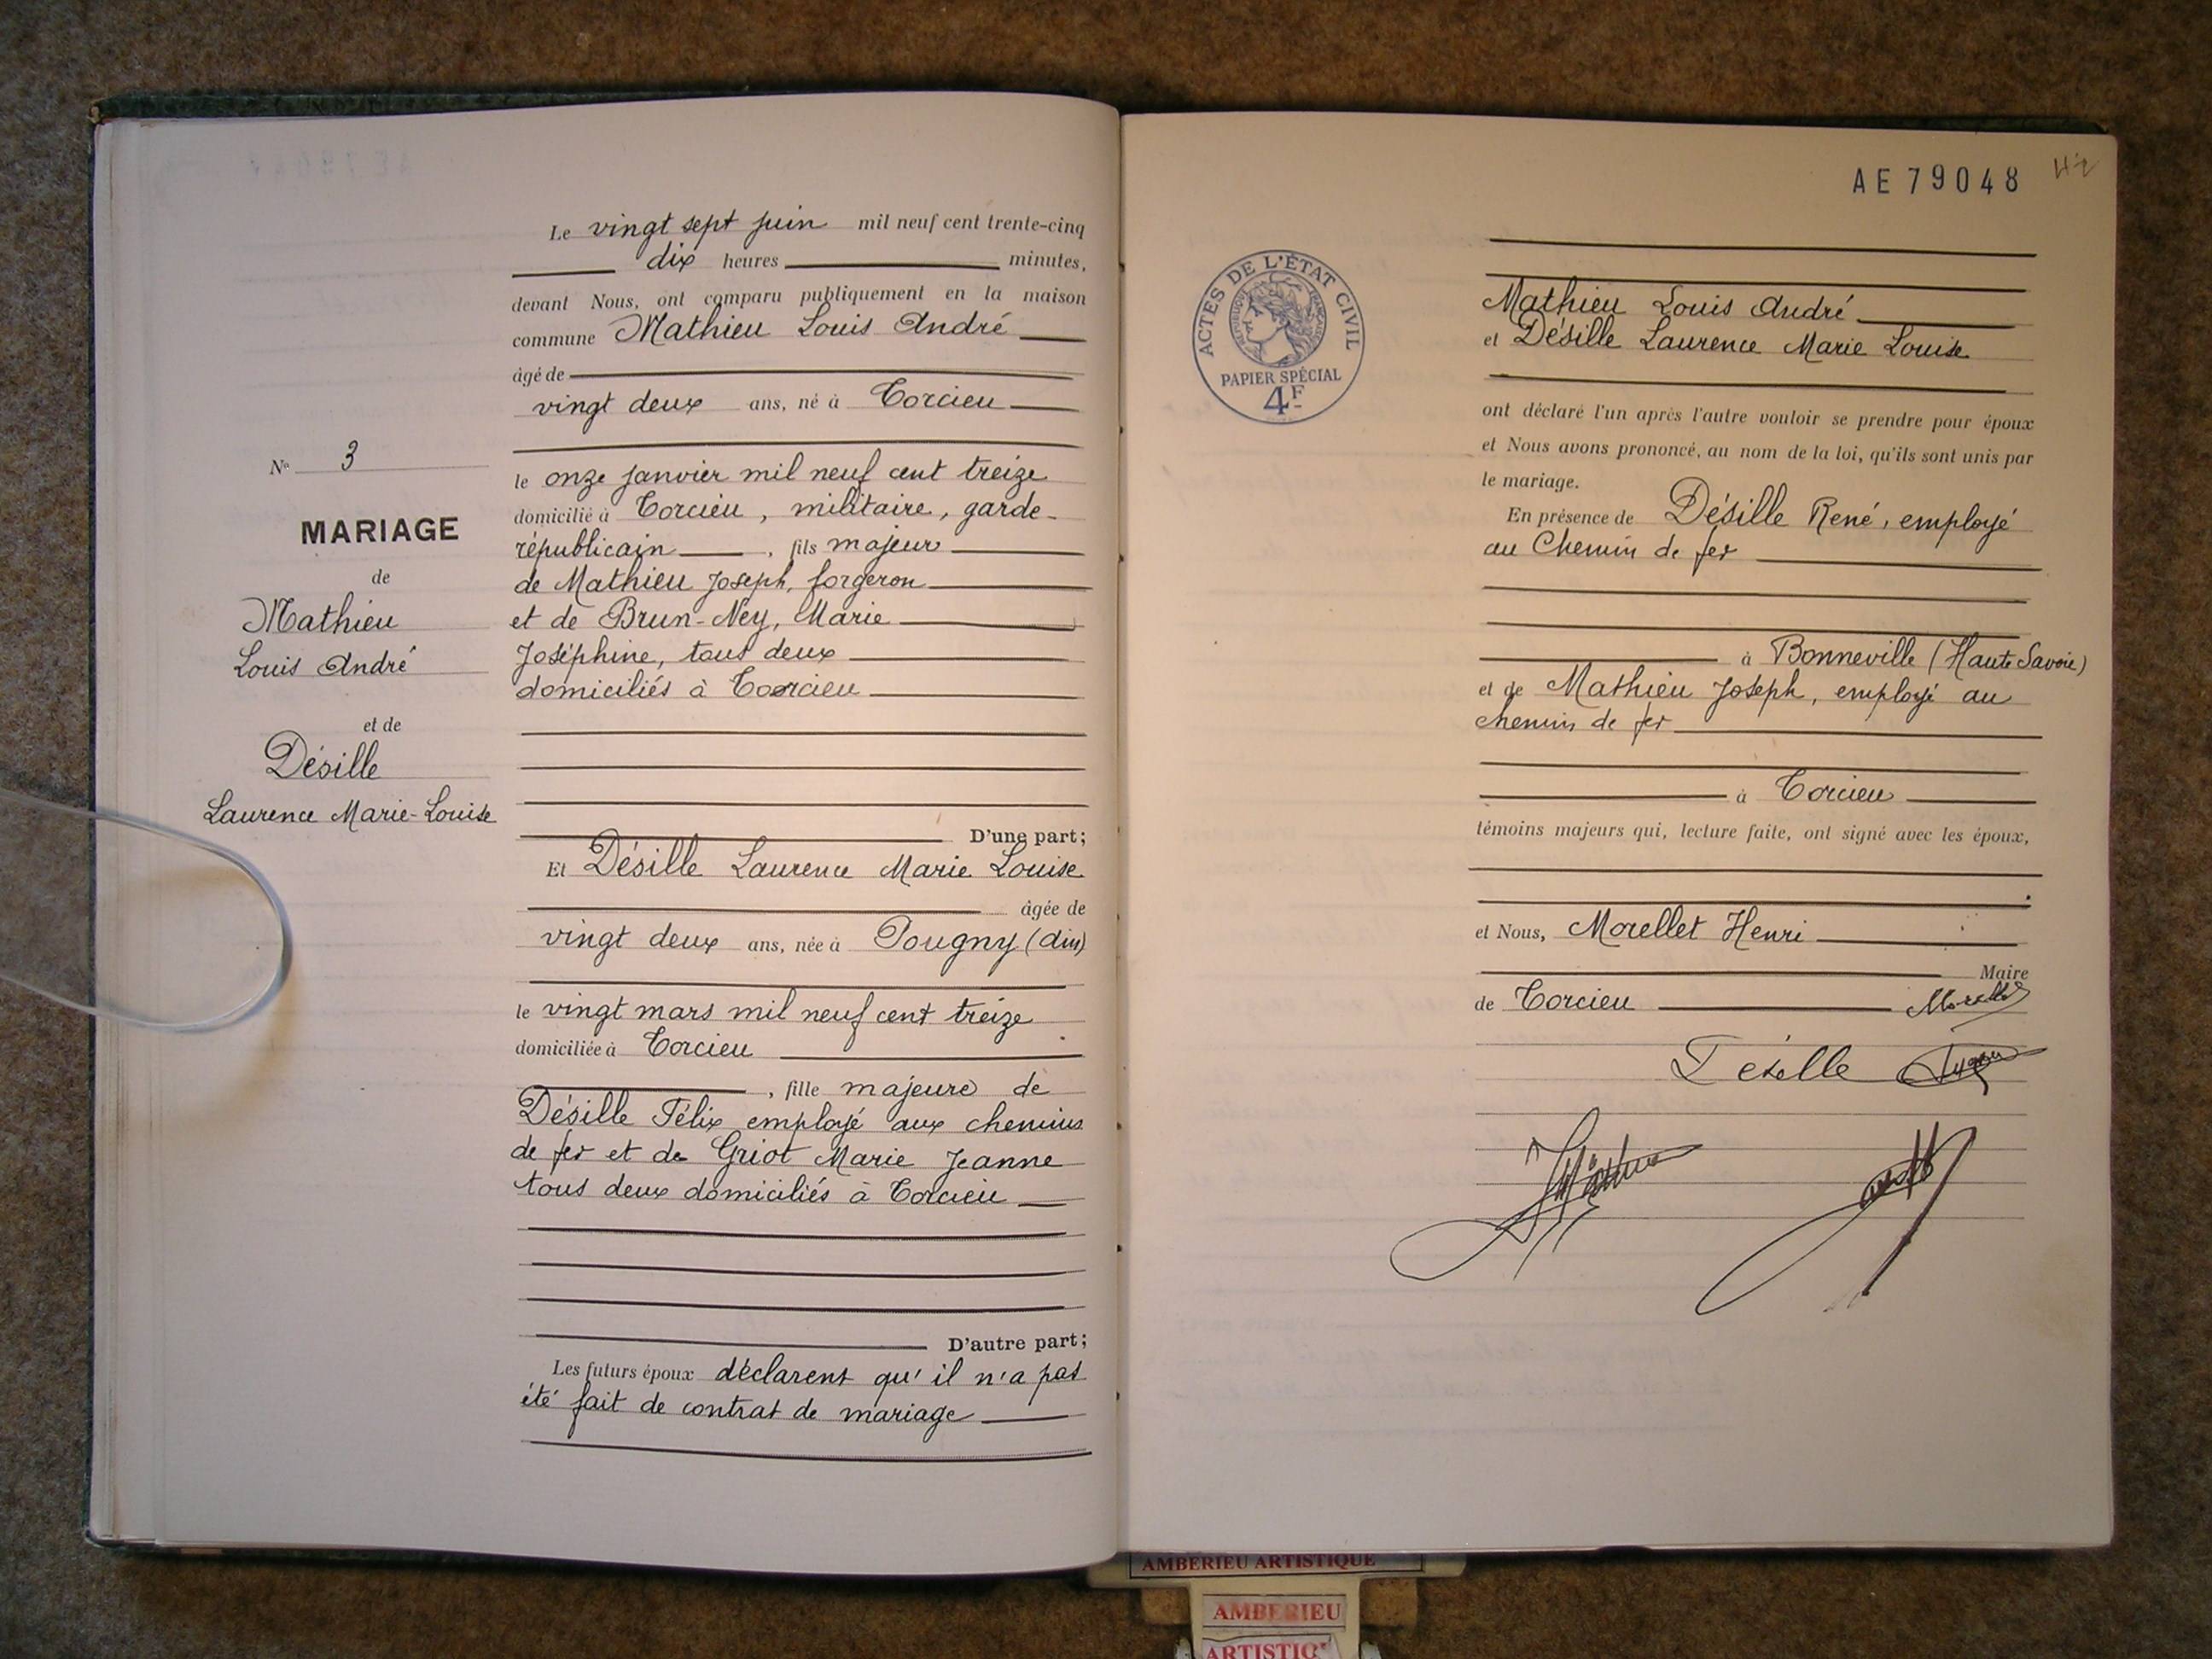 Le vingt sept juin mil neuf cent trente-cinq
dix heures minutes,
devant Nous, ont comparu publiquement en la maison
commune Mathieu Louis André
âgé de
vingt deux ans, né à Torcieu
N° 3
le onze janvier mil neuf cent treize
domicilié à Torcieu, militaire, garde-
MARIAGE
républicain, fils majeur
de
de Mathieu Joseph, forgeron
Mathieu
et de Brun-Ney, Marie
Louis André
Joséphine, tous deux
domiciliés à Torcieu
et de
Désille
Laurence Marie-Louise
D'une part;
Et Désille Laurence Marie Louise
âgée de
vingt deux ans, née à Pougny (Ain)
le vingt mars mil neuf cent treize
domiciliée à Torcieu
, fille majeure de
Désille Félix employé aux chemins
de fer et de Griot Marie Jeanne
tous deux domiciliés à Torcieu
D'autre part;
Les futurs époux déclarent qu'il n'a pas
été fait de contrat de mariage
AE 79048
42
ACTES DE L'ÉTAT CIVIL
RÉPUBLIQUE FRANÇAISE
PAPIER SPÉCIAL
4F
Mathieu Louis André
et Désille Laurence Marie Louise
ont déclaré l'un après l'autre vouloir se prendre pour époux
et Nous avons prononcé, au nom de la loi, qu'ils sont unis par
le mariage.
En présence de Désille René, employé
au Chemin de fer
à Bonneville (Haute Savoie)
et de Mathieu Joseph, employé au
chemin de fer
à Torcieu
témoins majeurs qui, lecture faite, ont signé avec les époux,
et Nous, Morellet Henri
Maire
de Torcieu Morellet
Désille
AMBERIEU ARTISTIQUE
AMBERIEU
ARTISTIQ